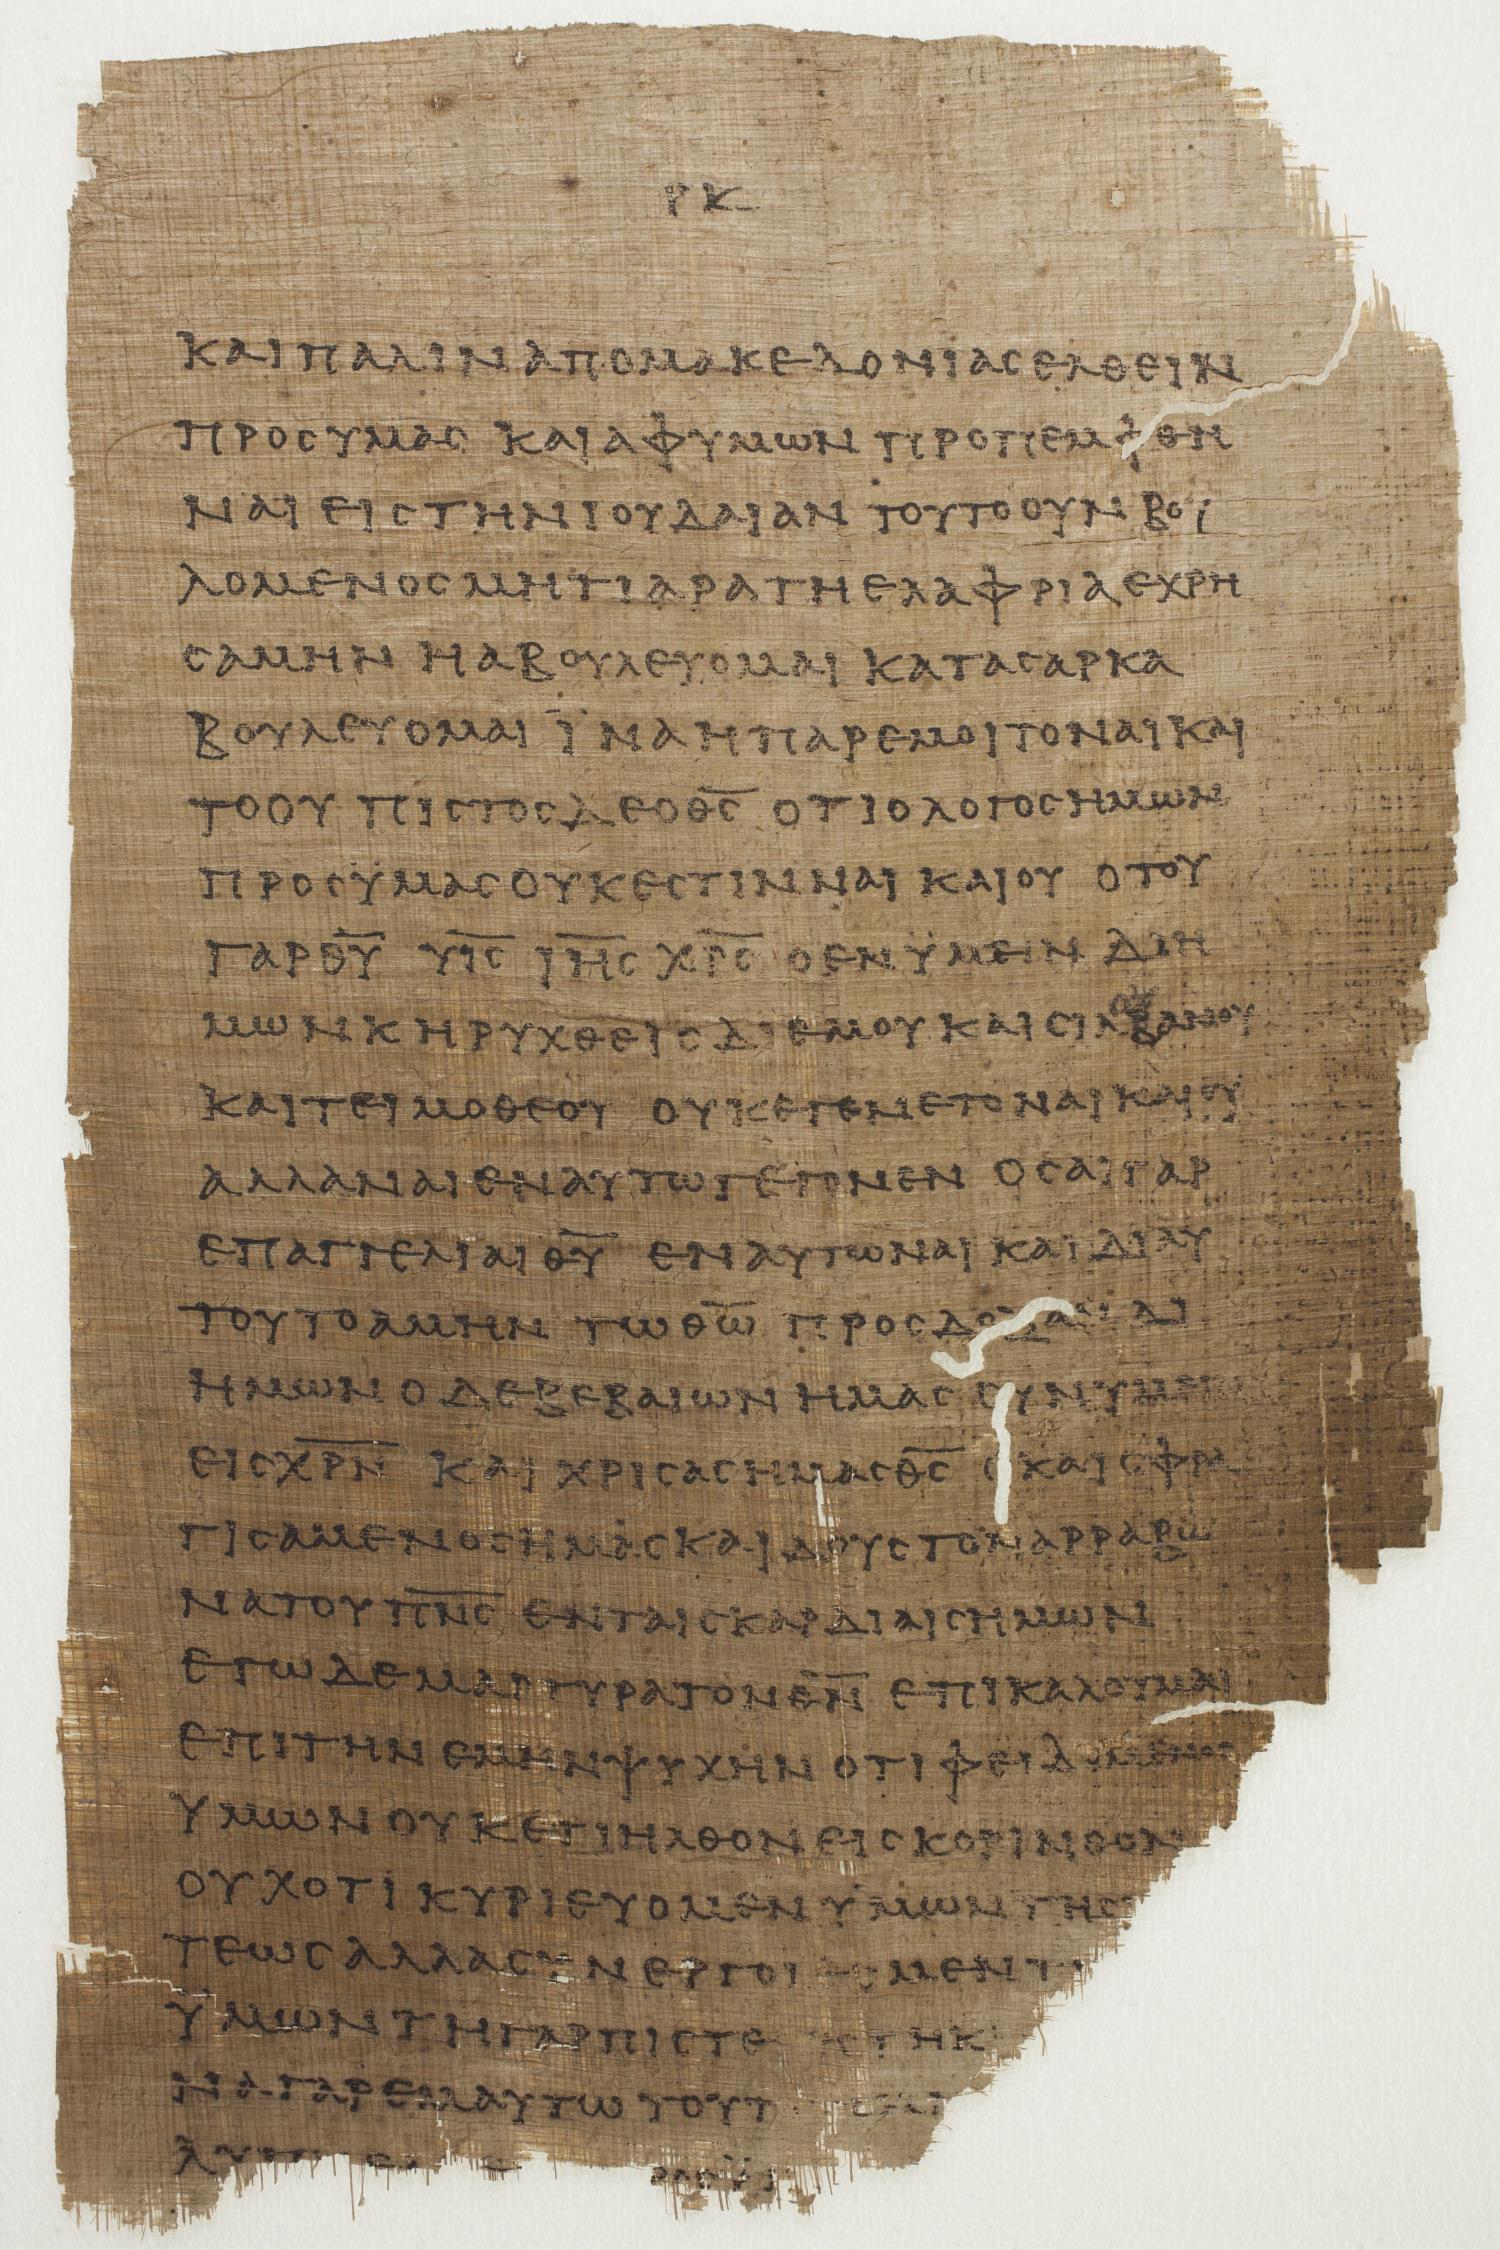 ΡΚ
ΚΑΙ ΠΑΛΙΝ ΑΠΟ ΜΑΚΕΔΟΝΙΑΣ ΕΛΘΕΙΝ
ΠΡΟΣ ΥΜΑΣ ΚΑΙ ΑΦ ΥΜΩΝ ΠΡΟΠΕΜΦΘΗ
ΝΑΙ ΕΙΣ ΤΗΝ ΙΟΥΔΑΙΑΝ ΤΟΥΤΟ ΟΥΝ ΒΟΥ
ΛΟΜΕΝΟΣ ΜΗΤΙ ΑΡΑ ΤΗ ΕΛΑΦΡΙΑ ΕΧΡΗ
ΣΑΜΗΝ Η Α ΒΟΥΛΕΥΟΜΑΙ ΚΑΤΑ ΣΑΡΚΑ
ΒΟΥΛΕΥΟΜΑΙ ΪΝΑ Η ΠΑΡ ΕΜΟΙ ΤΟ ΝΑΙ ΚΑΙ
ΤΟ ΟΥ ΠΙΣΤΟΣ ΔΕ Ο Θ̅Σ̅ ΟΤΙ Ο ΛΟΓΟΣ ΗΜΩΝ
ΠΡΟΣ ΫΜΑΣ ΟΥΚ ΕΣΤΙΝ ΝΑΙ ΚΑΙ ΟΥ Ο ΤΟΥ
ΓΑΡ Θ̅Υ̅ Υ̅Ι̅Σ̅ Ι̅Η̅Σ̅ Χ̅Ρ̅Σ̅ Ο ΕΝ ΫΜΕΙΝ ΔΙ Η
ΜΩΝ ΚΗΡΥΧΘΕΙΣ ΔΙ ΕΜΟΥ ΚΑΙ ΣΙΛΒΑΝΟΥ
ΚΑΙ ΤΕΙΜΟΘΕΟΥ ΟΥΚ ΕΓΕΝΕΤΟ ΝΑΙ ΚΑΙ ΟΥ
ΑΛΛΑ ΝΑΙ ΕΝ ΑΥΤΩ ΓΕΓΟΝΕΝ ΟΣΑΙ ΓΑΡ
ΕΠΑΓΓΕΛΙΑΙ Θ̅Υ̅ ΕΝ ΑΥΤΩ ΝΑΙ ΚΑΙ ΔΙ ΑΥ
ΤΟΥ ΤΟ ΑΜΗΝ ΤΩ Θ̅Ω̅ ΠΡΟΣ ΔΟΞΑΝ ΔΙ
ΗΜΩΝ Ο ΔΕ ΒΕΒΑΙΩΝ ΗΜΑΣ ΣΥΝ ΥΜΕΙΝ
ΕΙΣ Χ̅Ρ̅Ν̅ ΚΑΙ ΧΡΙΣΑΣ ΗΜΑΣ Θ̅Σ̅ Ο ΚΑΙ ΣΦΡΑ
ΓΙΣΑΜΕΝΟΣ ΗΜΑΣ ΚΑΙ ΔΟΥΣ ΤΟΝ ΑΡΡΑΒΩ
ΝΑ ΤΟΥ Π̅Ν̅Σ̅ ΕΝ ΤΑΙΣ ΚΑΡΔΙΑΙΣ ΗΜΩΝ
ΕΓΩ ΔΕ ΜΑΡΤΥΡΑ ΤΟΝ Θ̅Ν̅ ΕΠΙΚΑΛΟΥΜΑΙ
ΕΠΙ ΤΗΝ ΕΜΗΝ ΨΥΧΗΝ ΟΤΙ ΦΕΙΔΟΜΕΝΟΣ
ΥΜΩΝ ΟΥΚΕΤΙ ΗΛΘΟΝ ΕΙΣ ΚΟΡΙΝΘΟΝ
ΟΥΧ ΟΤΙ ΚΥΡΙΕΥΟΜΕΝ ΫΜΩΝ ΤΗΣ
ΤΕΩΣ ΑΛΛΑ ΣΥΝΕΡΓΟΙ ΕΣΜΕΝ Τ
ΫΜΩΝ ΤΗ ΓΑΡ ΠΙΣΤΕΙ ΕΣΤΗΚ
ΝΑ ΓΑΡ ΕΜΑΥΤΩ ΤΟΥΤ
ΛΥΠ